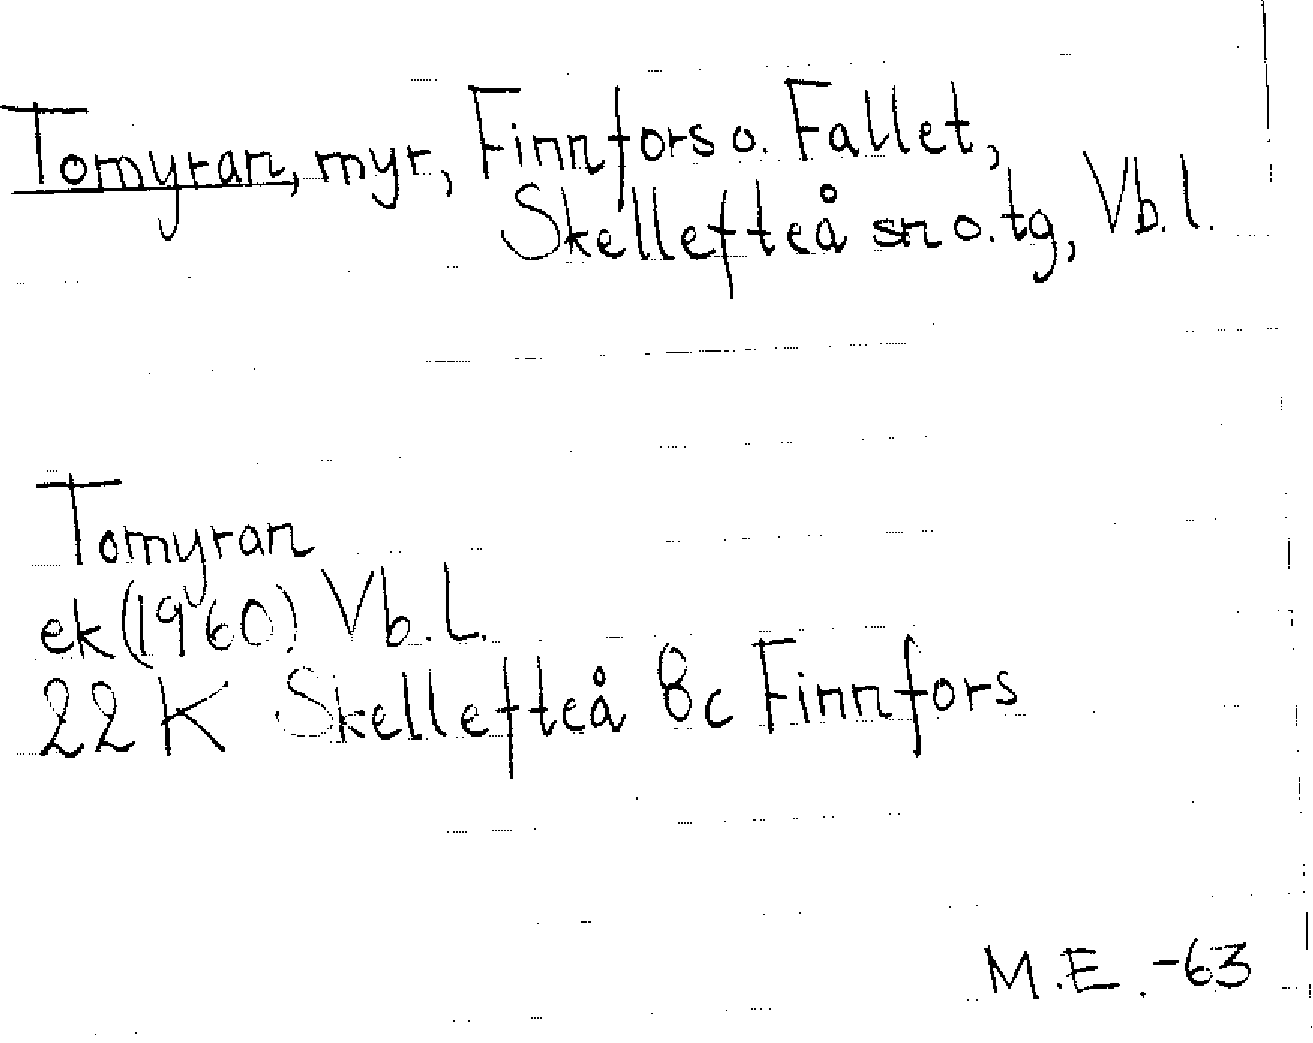 Tomyran, myr, Finnfors o. Fallet,
Skellefteå sn o. tg, Vb. l.
Tomyran
ek (1960) Vb. L.
22 K Skellefteå 8c Finnfors
M.E. -63